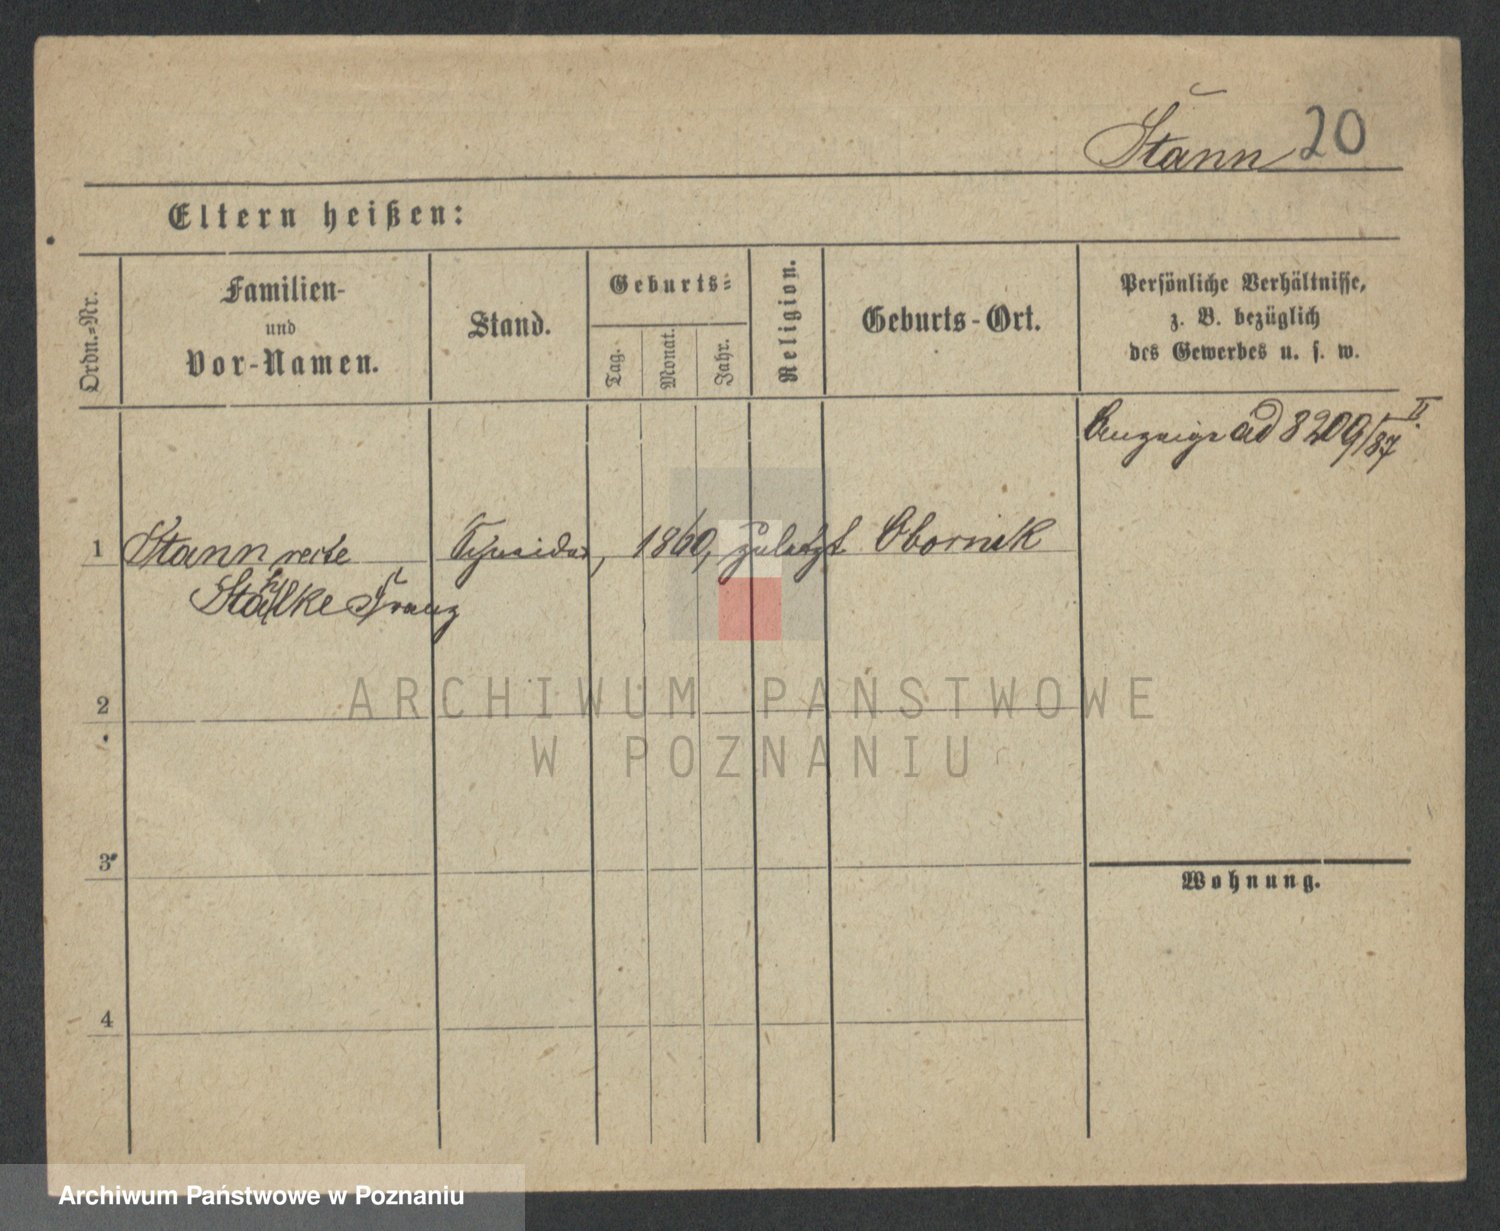 Stann 20
Eltern heißen:
Ordn.-Nr.
Familien-
und
Vor-Namen.
Stand.
Geburts-
Tag.
Monat.
Jahr.
Religion.
Geburts-Ort.
Persönliche Verhältnisse,
z. B. bezüglich
des Gewerbes u. s. w.
Anzeige ad 8209/87 II.
1 Stann recte Schneider, 1860, zuletzt Obornik
Franz
2
3
4
Wohnung.
ARCHIWUM PAŃSTWOWE
W POZNANIU
Archiwum Państwowe w Poznaniu